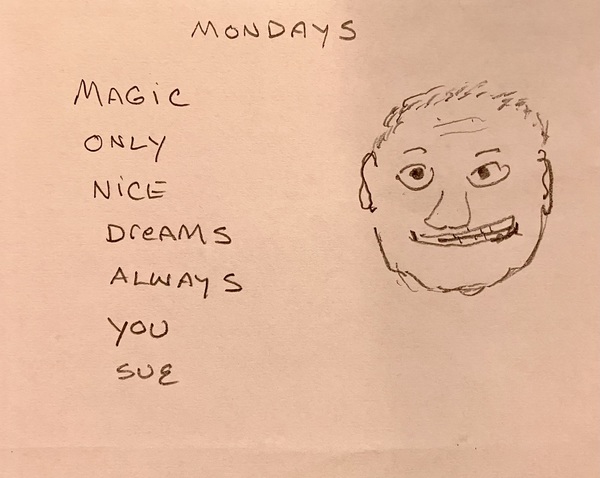 MONDAYS
MAGiC
ONLY
NiCE
DreAMS
ALWAYS
YOU
SUE